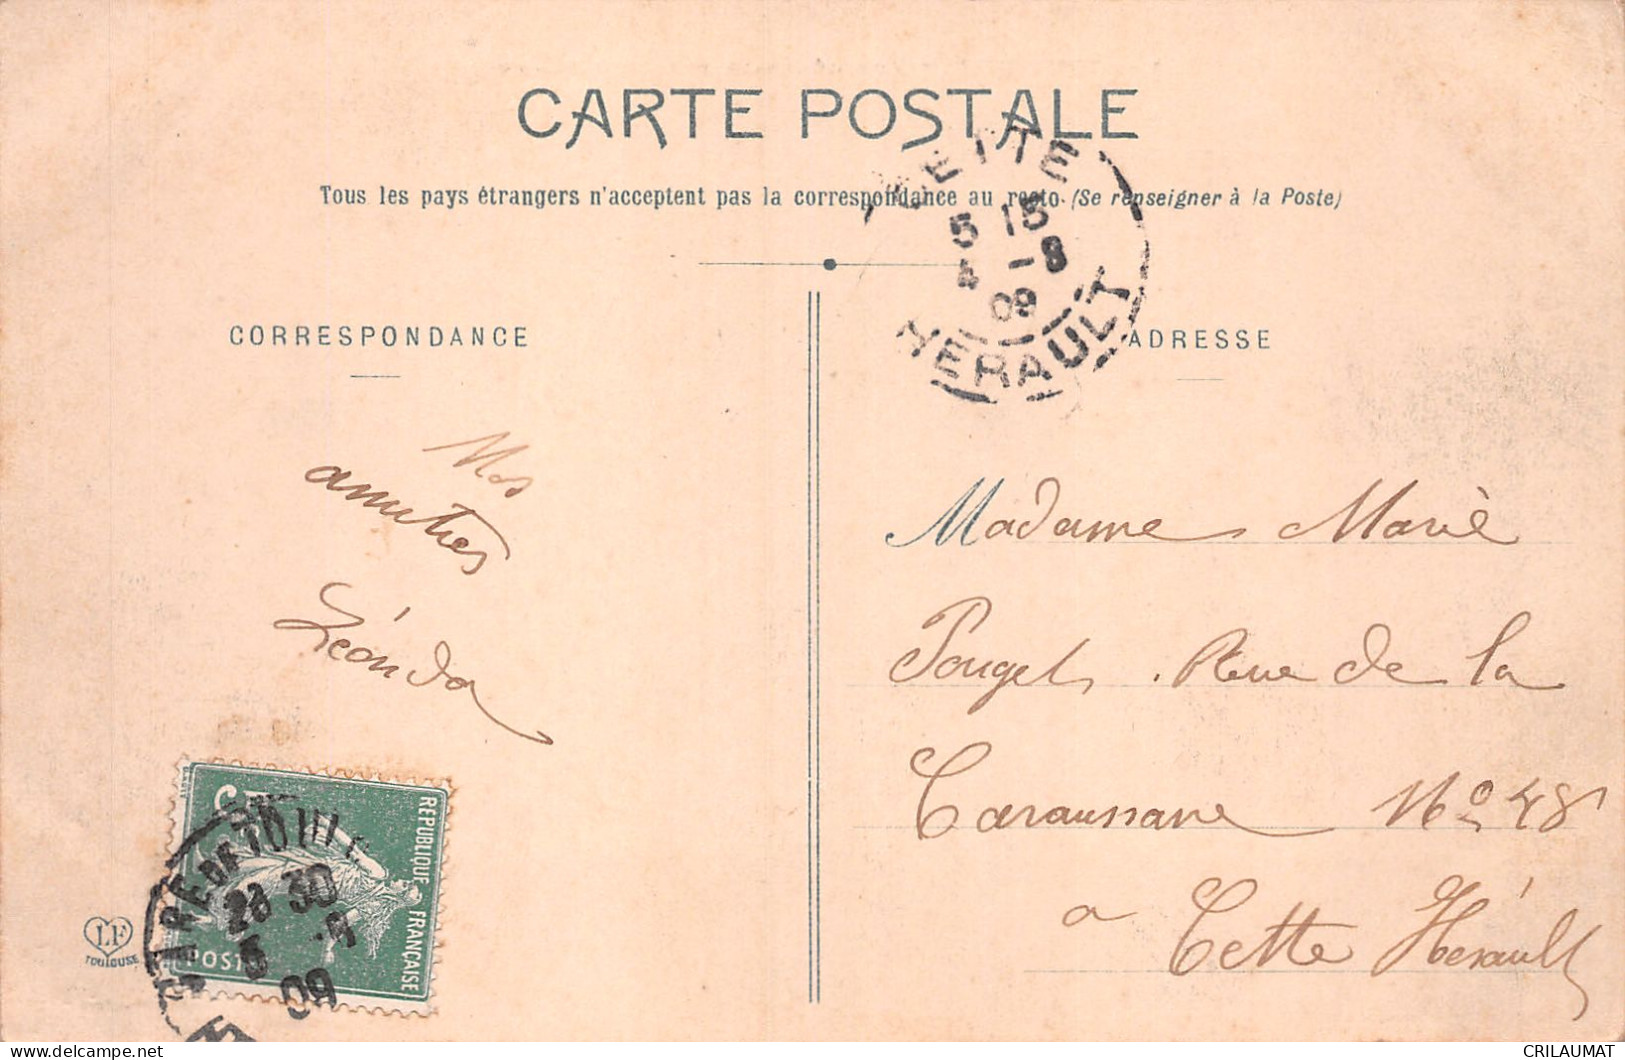 CARTE POSTALE
Tous les pays étrangers n'acceptent pas la correspondance au recto (Se renseigner à la Poste)
CETTE
5 15
4 -8
09
HERAULT
CORRESPONDANCE
ADRESSE
Mes
amitiés
Léonda
Madame Marie
Pouget Rue de la
Caraussane No 48
a Cette Hérault
REPUBLIQUE FRANÇAISE
POST
GARE DE TOUL
30
09
LF
TOULOUSE
CRILAUMAT